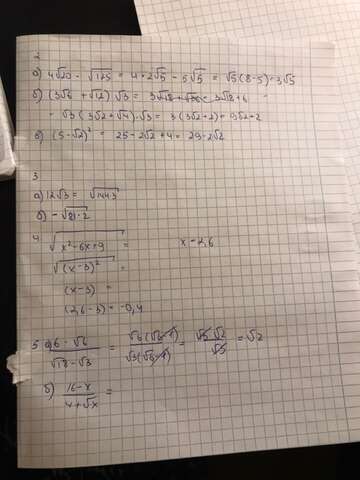 2
а) 4√20 - √125 = 4 * 2√5 - 5√5 = √5(8-5) = 3√5
б) (3√6 + √12) √3 = 3√18 + √36 = 3√18 + 6 =
= √3(3√2 + √4) √3 = 3(3√2+2) = 9√2+2
в) (5-√2)² = 25 - 2√2 + 4 = 29 - 2√2
3
а) 12√3 = √144·3
б) -√81·2
4
√x²-6x+9 = x - 2,6
√(x-3)² =
(x-3) =
(2,6-3) = -0,4
5 а) 6-√6 / √18-√3 = √6(√6-1) / √3(√6-1) = √3√2 / √3 = √2
б) 16-x / 4+√x =